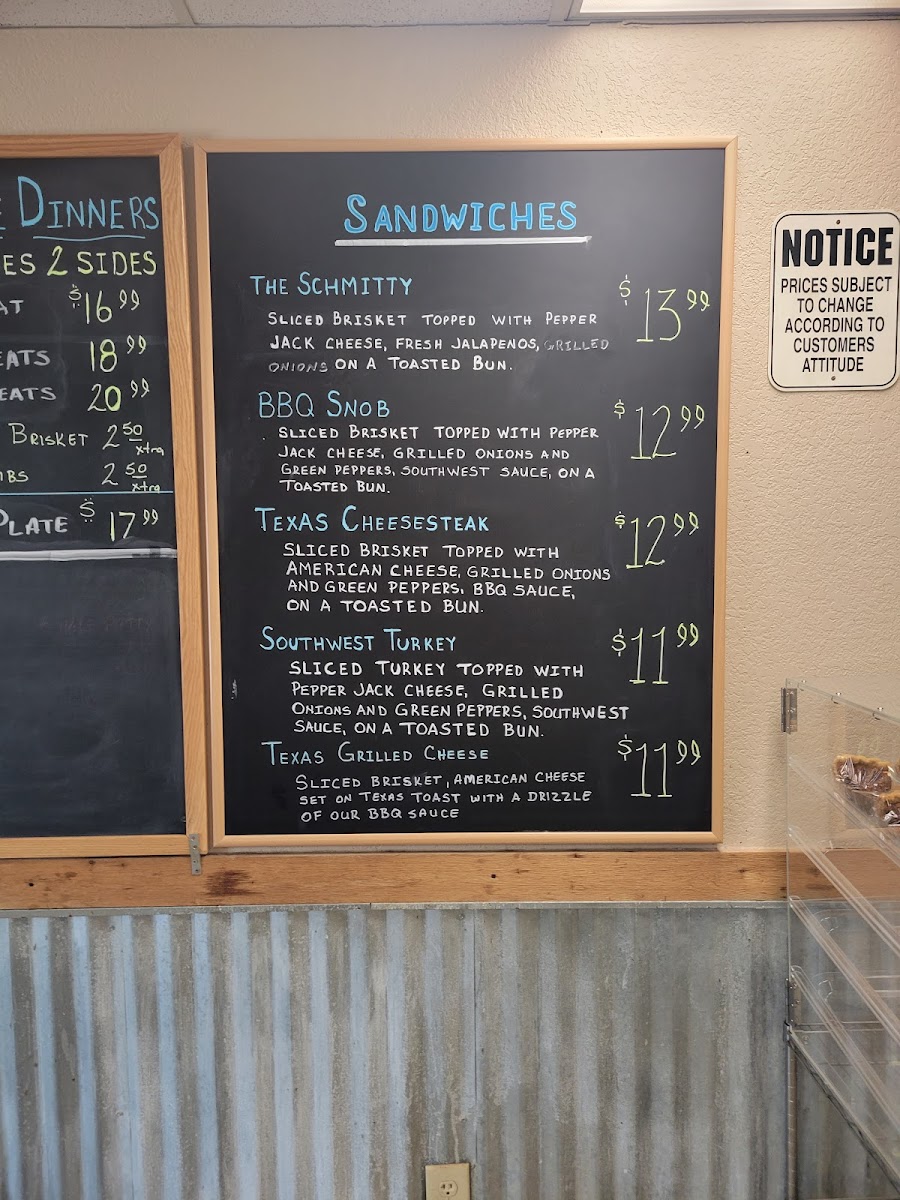 DINNERS
ES 2 SIDES
AT $16.99
EATS 18.99
EATS 20.99
BRISKET 2.50 xtra
BS 2.50 xtra
PLATE $17.99
SANDWICHES
THE SCHMITTY $13.99
SLICED BRISKET TOPPED WITH PEPPER
JACK CHEESE, FRESH JALAPENOS, GRILLED
ONIONS ON A TOASTED BUN.
BBQ SNOB $12.99
SLICED BRISKET TOPPED WITH PEPPER
JACK CHEESE, GRILLED ONIONS AND
GREEN PEPPERS, SOUTHWEST SAUCE, ON A
TOASTED BUN.
TEXAS CHEESESTEAK $12.99
SLICED BRISKET TOPPED WITH
AMERICAN CHEESE, GRILLED ONIONS
AND GREEN PEPPERS, BBQ SAUCE,
ON A TOASTED BUN.
SOUTHWEST TURKEY $11.99
SLICED TURKEY TOPPED WITH
PEPPER JACK CHEESE, GRILLED
ONIONS AND GREEN PEPPERS, SOUTHWEST
SAUCE, ON A TOASTED BUN.
TEXAS GRILLED CHEESE $11.99
SLICED BRISKET, AMERICAN CHEESE
SET ON TEXAS TOAST WITH A DRIZZLE
OF OUR BBQ SAUCE
NOTICE
PRICES SUBJECT
TO CHANGE
ACCORDING TO
CUSTOMERS
ATTITUDE